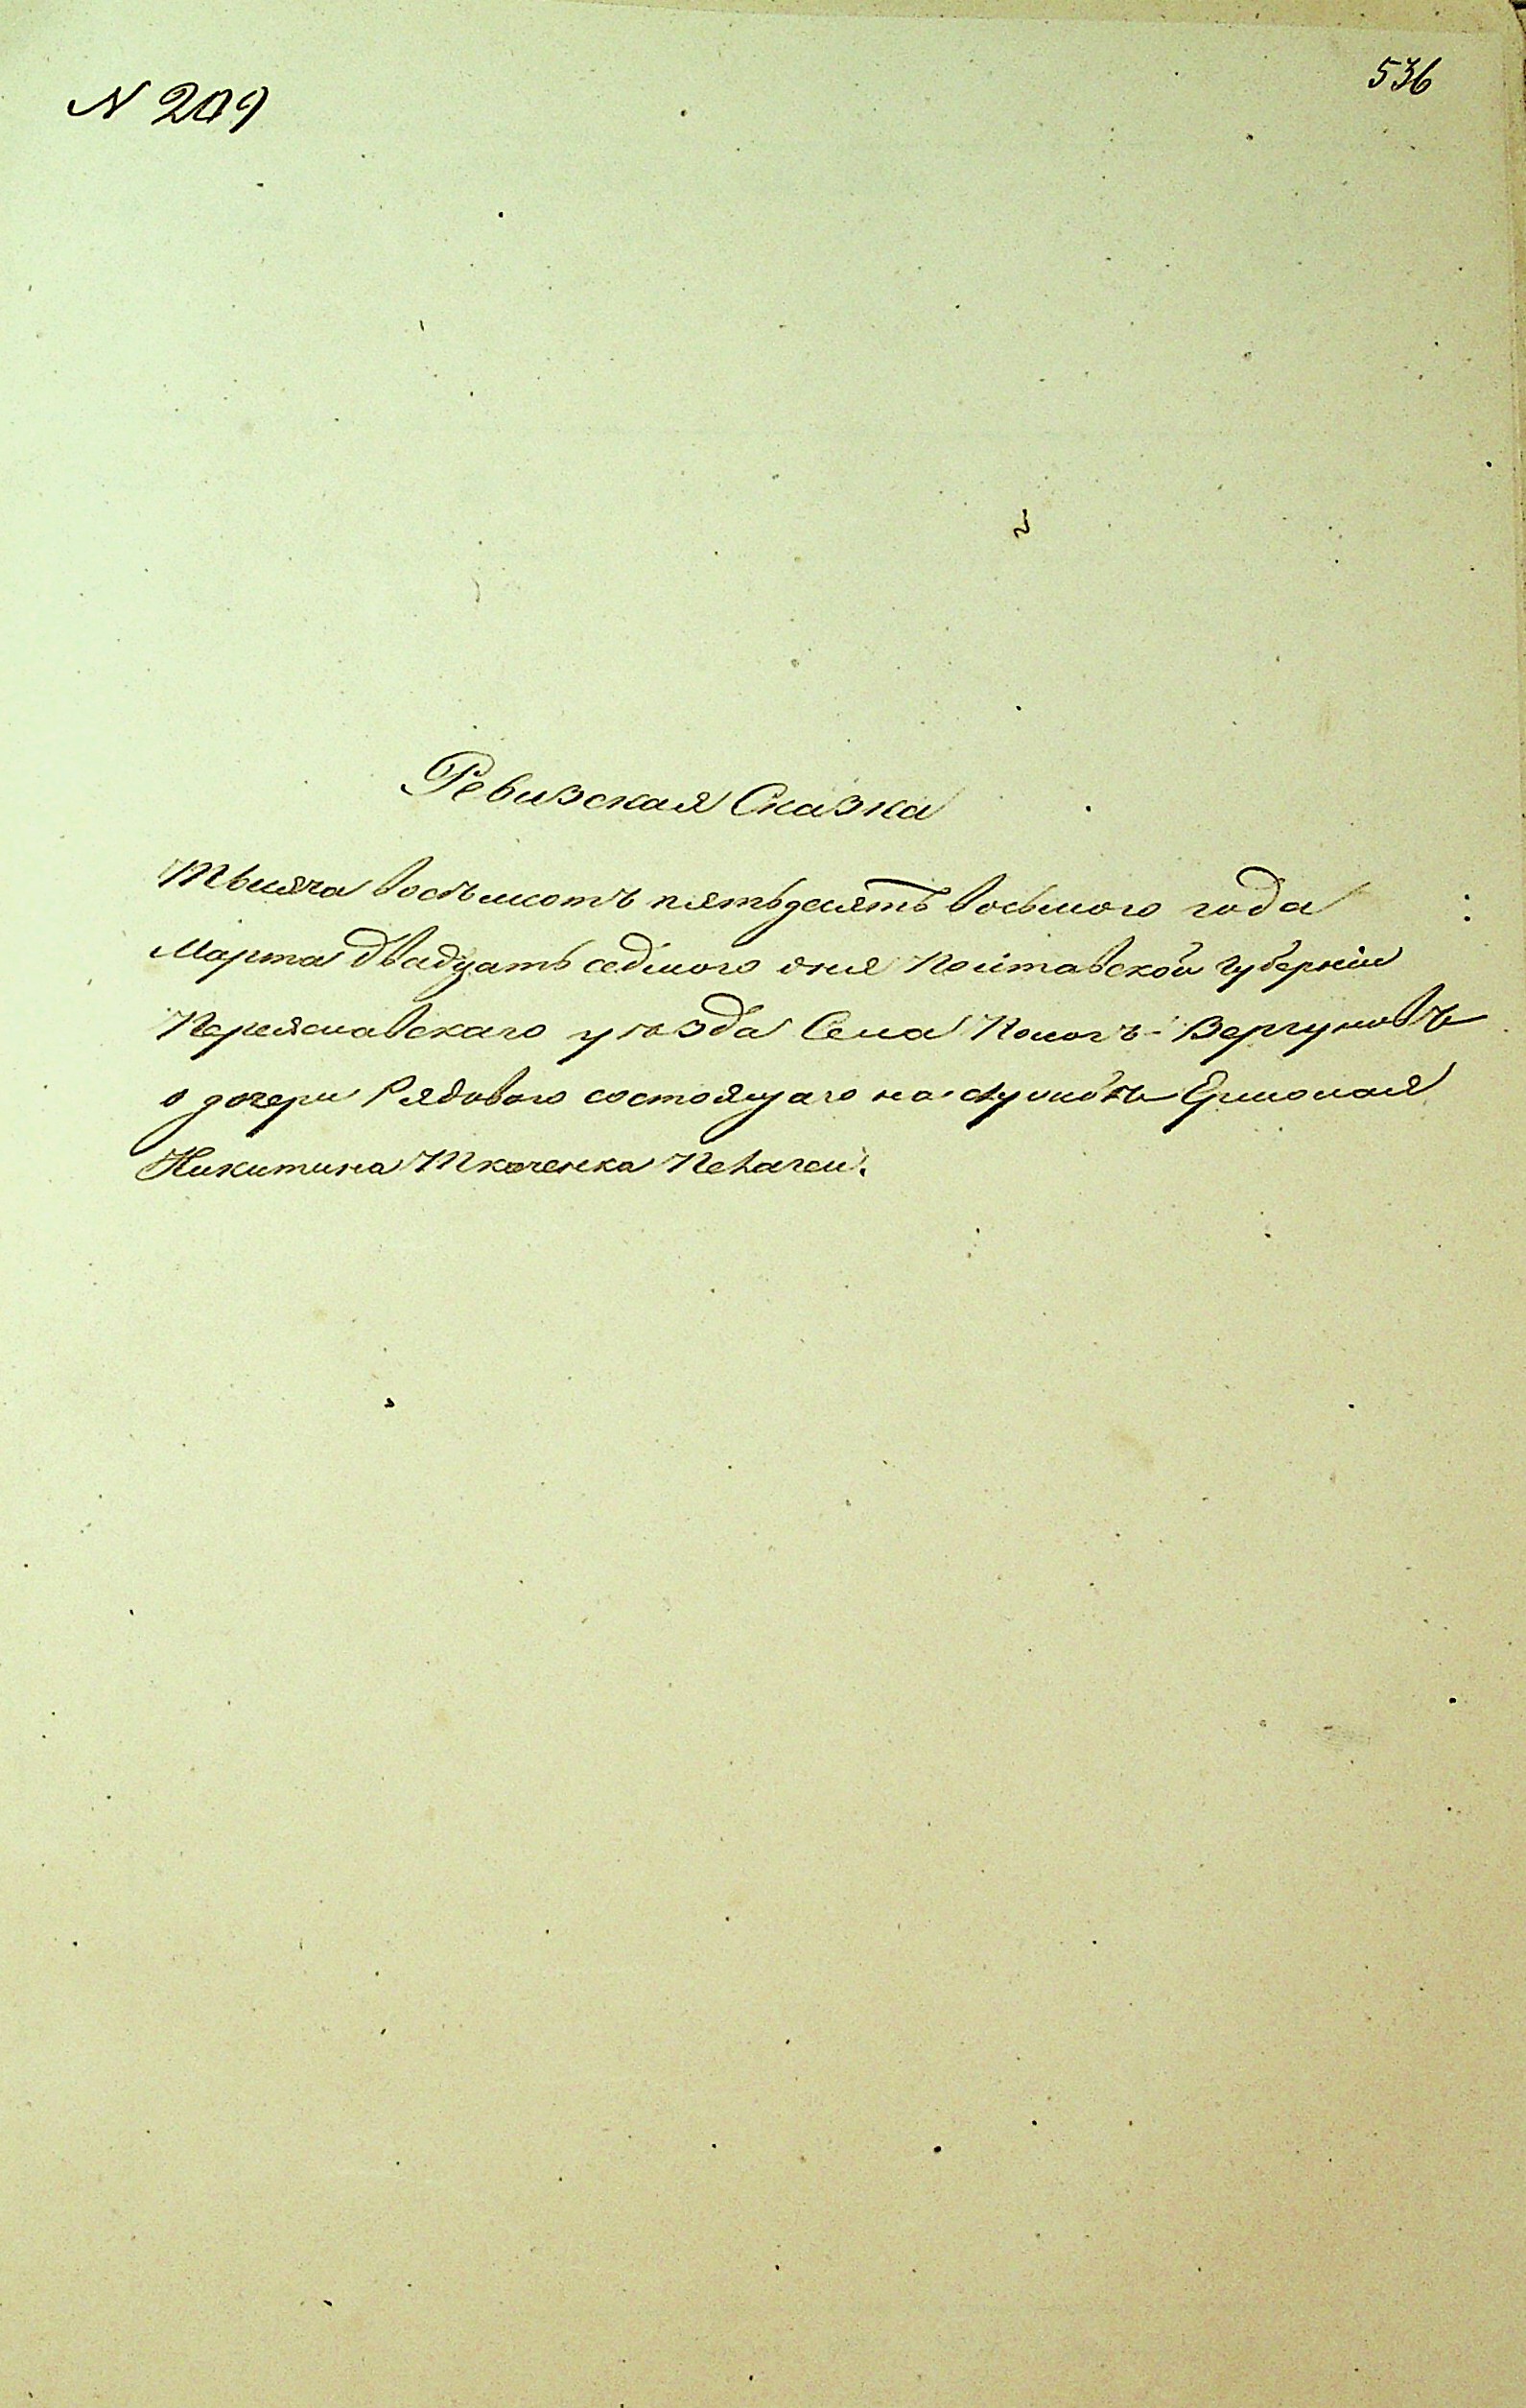 N 209
536
Ревизская Сказка
Тысяча восемсотъ пятьдесятъ восьмого года
Марта двадцать седмого дня Полтавской губерніи
Переяславскаго уѣзда Села Пологъ-Вергуновъ
о дочери Рядового состоящаго на службѣ Ермолая
Никитина Ткаченка Пелагеи.